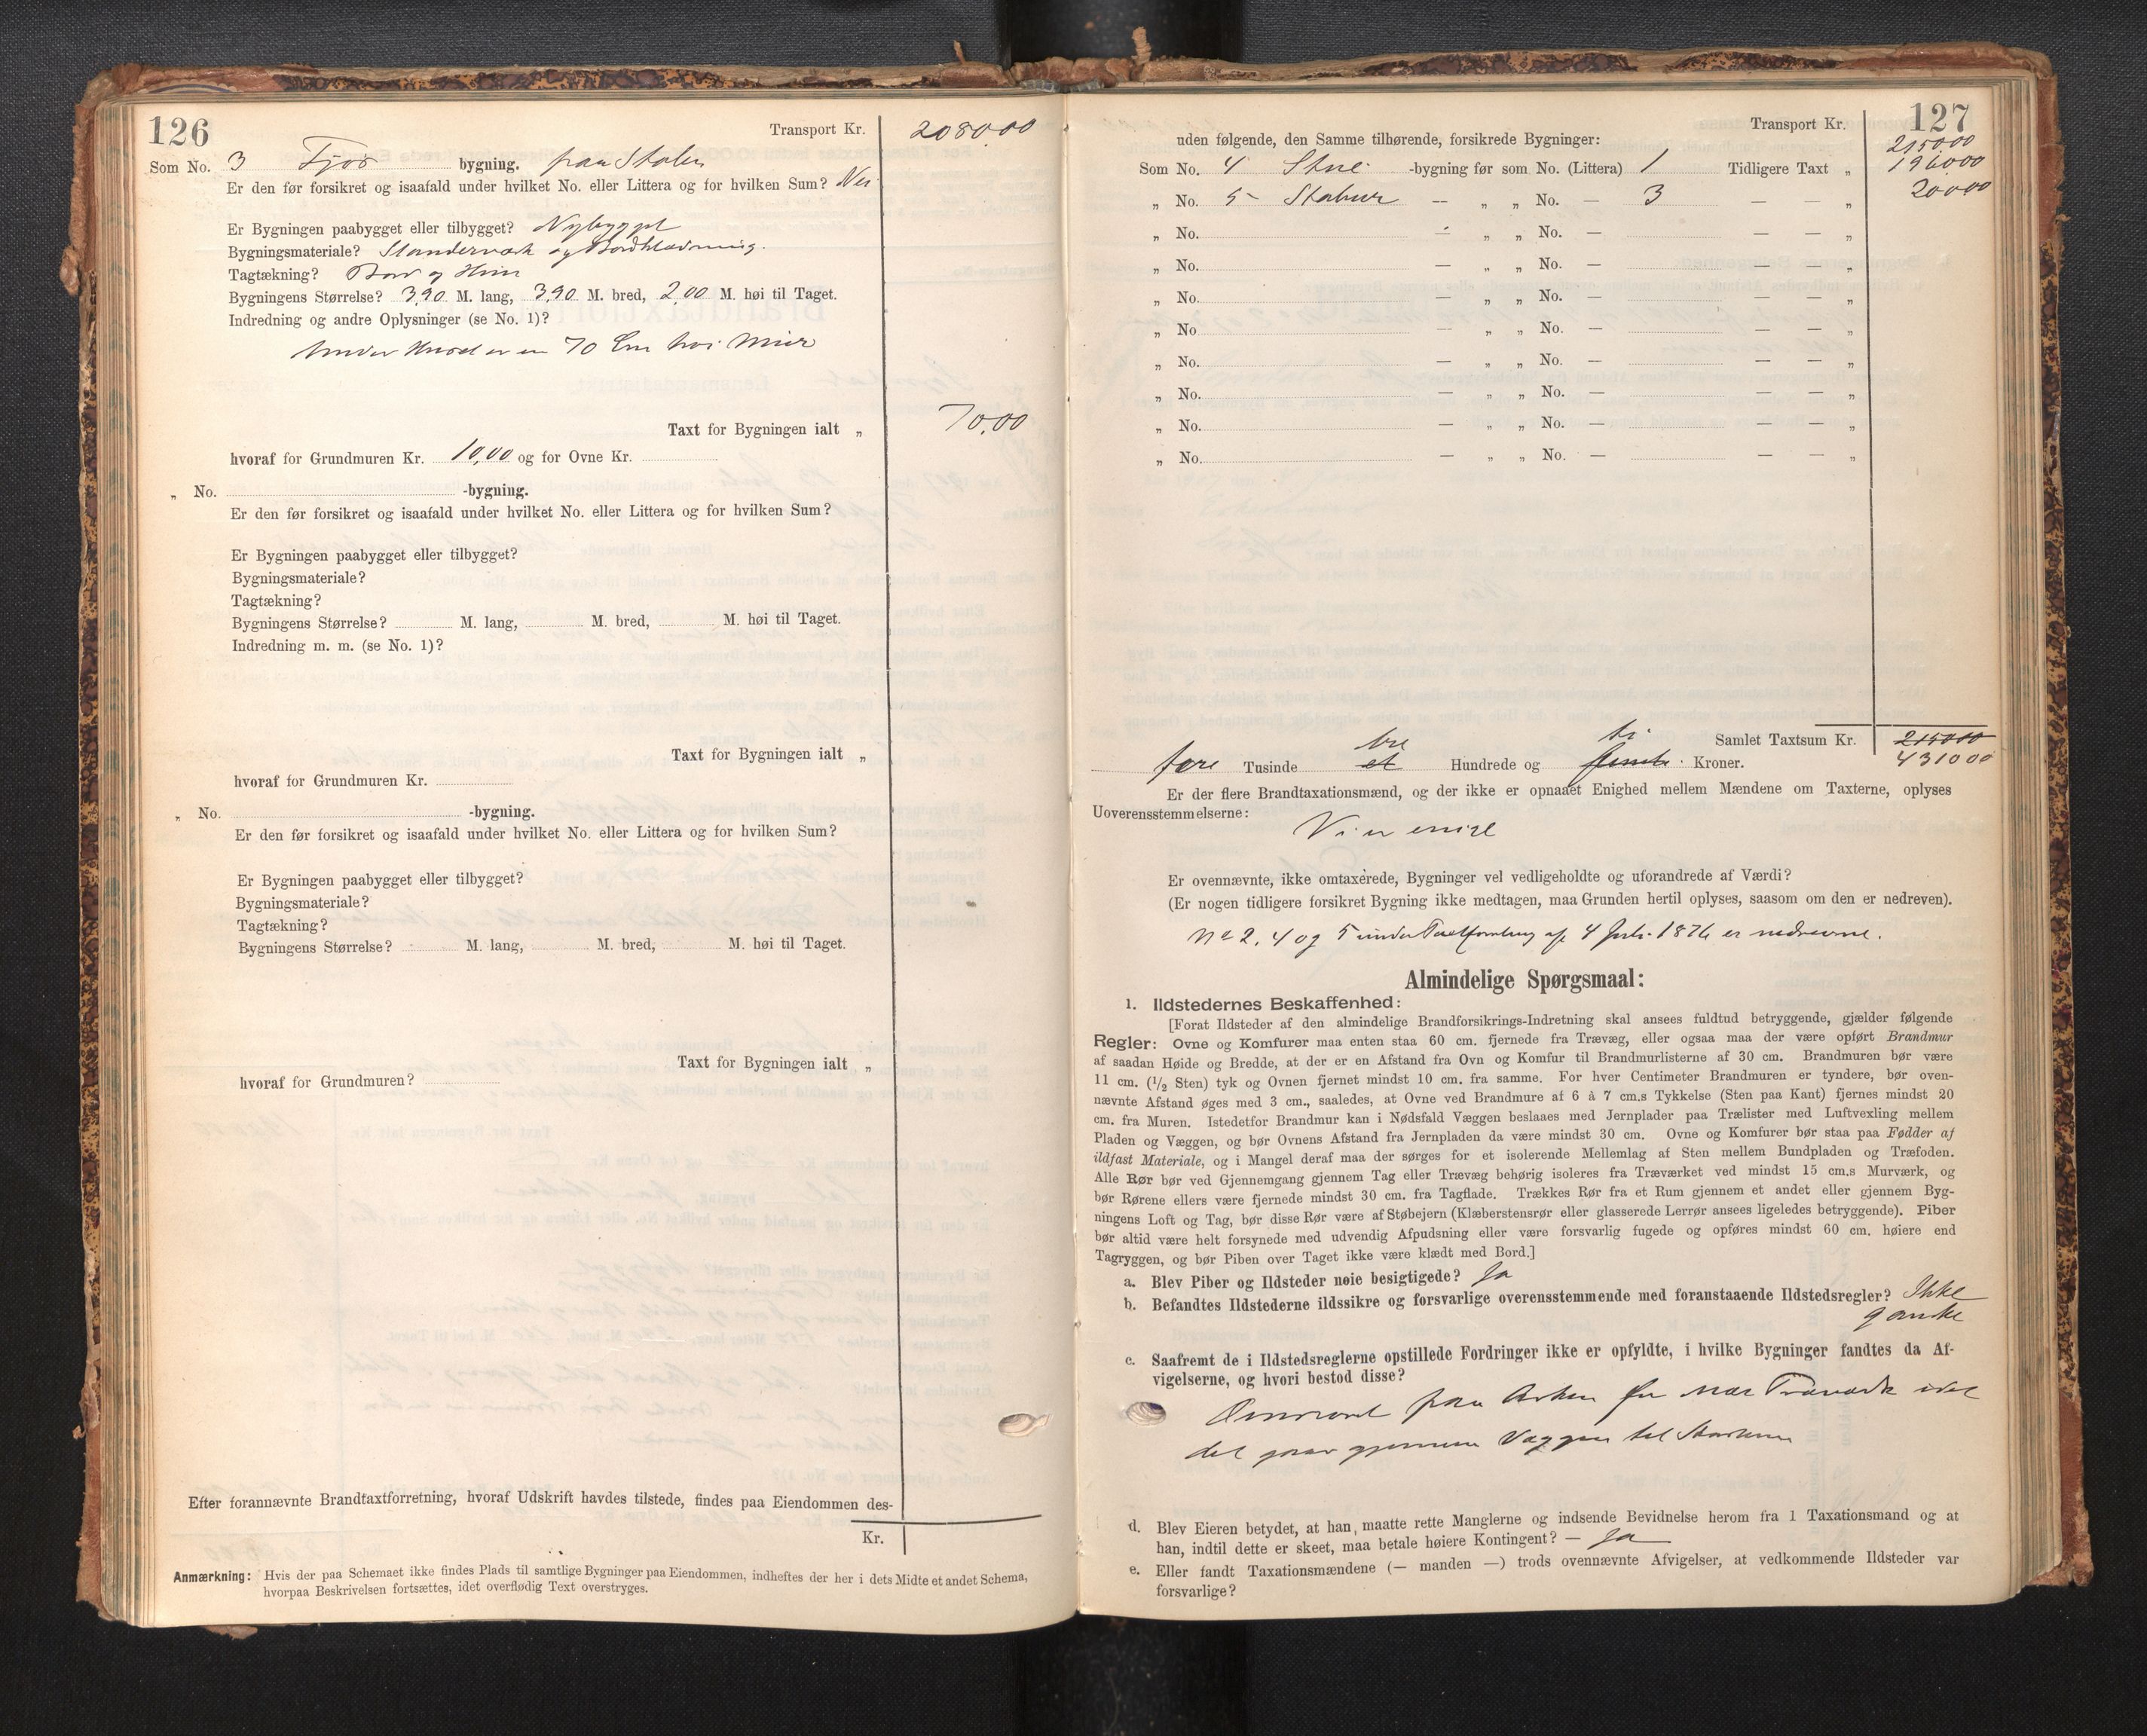 126
Transport Kr. 2080 00
Som No. 3 Fjøs bygning. paa Stølen
Er den før forsikret og isaafald under hvilket No. eller Littera og for hvilken Sum? Nei
Er Bygningen paabygget eller tilbygget? Nybygget
Bygningsmateriale? Standerværk og Bordklædning.
Tagtækning? Bord og
Bygningens Størrelse? 3,90 M. lang, 3,90 M. bred, 2,00 M. høi til Taget.
Indredning og andre Oplysninger (se No. 1)?
Under Huset er en 70 Cm høi Mur
Taxt for Bygningen ialt „ 70,00
hvoraf for Grundmuren Kr. 10,00 og for Ovne Kr.
„ No. -bygning.
Er den før forsikret og isaafald under hvilket No. eller Littera og for hvilken Sum?
Er Bygningen paabygget eller tilbygget?
Bygningsmateriale?
Tagtækning?
Bygningens Størrelse? M. lang, M. bred, M. høi til Taget.
Indredning m. m. (se No. 1)?
Taxt for Bygningen ialt „
hvoraf for Grundmuren Kr.
„ No. -bygning.
Er den før forsikret og isaafald under hvilket No. eller Littera og for hvilken Sum?
Er Bygningen paabygget eller tilbygget?
Bygningsmateriale?
Tagtækning?
Bygningens Størrelse? M. lang, M. bred, M. høi til Taget.
Taxt for Bygningen ialt „
hvoraf for Grundmuren?
Efter forannævnte Brandtaxtforretning, hvoraf Udskrift havdes tilstede, findes paa Eiendommen des-
Kr.
Anmærkning: Hvis der paa Schemaet ikke findes Plads til samtlige Bygninger paa Eiendommen, indheftes der her i dets Midte et andet Schema,
hvorpaa Beskrivelsen fortsættes, idet overflødig Text overstryges.
127
Transport Kr. 2150 00
uden følgende, den Samme tilhørende, forsikrede Bygninger:
Som No. 4 Stue -bygning før som No. (Littera) 1 Tidligere Taxt „ 1960 00
„ No. 5 Stabur — „ „ No. — 3 — — „ 200 00
„ No. — „ „ No. — — — „
„ No. — „ „ No. — — — „
„ No. — „ „ No. — — — „
„ No — „ „ No. — — — „
„ No. — „ „ No. — — — „
„ No. — „ „ No. — — — „
„ No. — „ „ No. — — — „
„ No. — „ „ No. — — — „
Samlet Taxtsum Kr. 2150 00
tre ti
fire Tusinde et Hundrede og femti Kroner. 4310 00
Er der flere Brandtaxationsmænd, og der ikke er opnaaet Enighed mellem Mændene om Taxterne, oplyses
Uoverensstemmelserne:
Vi er enige
Er ovennævnte, ikke omtaxerede, Bygninger vel vedligeholdte og uforandrede af Værdi?
(Er nogen tidligere forsikret Bygning ikke medtagen, maa Grunden hertil oplyses, saasom om den er nedreven).
No 2, 4 og 5 under Taxtforretning af 4 Juli 1876 er nedrevne.
Almindelige Spørgsmaal:
1. Ildstedernes Beskaffenhed:
[Forat Ildsteder af den almindelige Brandforsikrings-Indretning skal ansees fuldtud betryggende, gjælder følgende
Regler: Ovne og Komfurer maa enten staa 60 cm. fjernede fra Trævæg, eller ogsaa maa der være opført Brandmur
af saadan Høide og Bredde, at der er en Afstand fra Ovn og Komfur til Brandmurlisterne af 30 cm. Brandmuren bør være
11 cm. (1/2 Sten) tyk og Ovnen fjernet mindst 10 cm. fra samme. For hver Centimeter Brandmuren er tyndere, bør oven-
nævnte Afstand øges med 3 cm., saaledes, at Ovne ved Brandmure af 6 à 7 cm.s Tykkelse (Sten paa Kant) fjernes mindst 20
cm. fra Muren. Istedetfor Brandmur kan i Nødsfald Væggen beslaaes med Jernplader paa Trælister med Luftvexling mellem
Pladen og Væggen, og bør Ovnens Afstand fra Jernpladen da være mindst 30 cm. Ovne og Komfurer bør staa paa Fødder af
ildfast Materiale, og i Mangel deraf maa der sørges for et isolerende Mellemlag af Sten mellem Bundpladen og Træfoden.
Alle Rør bør ved Gjennemgang gjennem Tag eller Trævæg behørig isoleres fra Træværket ved mindst 15 cm.s Murværk, og
bør Rørene ellers være fjernede mindst 30 cm. fra Tagflade. Trækkes Rør fra et Rum gjennem et andet eller gjennem Byg-
ningens Loft og Tag, bør disse Rør være af Støbejern (Klæberstensrør eller glasserede Lerrør ansees ligeledes betryggende). Piber
bør altid være helt forsynede med udvendig Afpudsning eller være forsvarlig fugede og opføres mindst 60 cm. høiere end
Tagryggen, og bør Piben over Taget ikke være klædt med Bord.]
a. Blev Piber og Ildsteder nøie besigtigede? Ja
b. Befandtes Ildstederne ildssikre og forsvarlige overensstemmende med foranstaaende Ildstedsregler? Ikke
ganske
c. Saafremt de i Ildstedsreglerne opstillede Fordringer ikke er opfyldte, i hvilke Bygninger fandtes da Af-
vigelserne, og hvori bestod disse?
Ovnsrøret paa for nær Træværk idet
det gaar gjennem Væggen til Skorsten
d. Blev Eieren betydet, at han maatte rette Manglerne og indsende Bevidnelse herom fra 1 Taxationsmand og at
han, indtil dette er skeet, maa betale høiere Kontingent? — Ja
e. Eller fandt Taxationsmændene (— manden —) trods ovennævnte Afvigelser, at vedkommende Ildsteder var
forsvarlige?